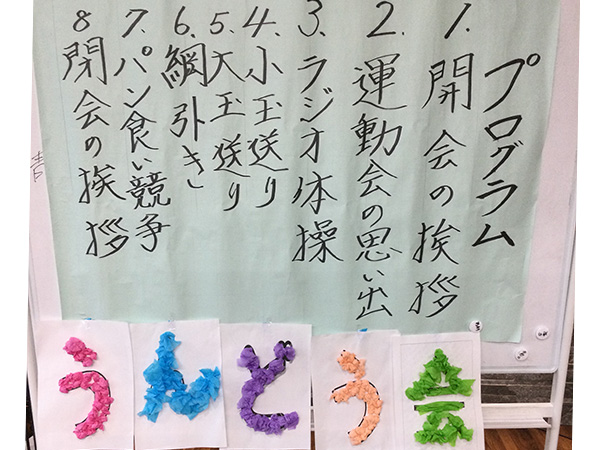 プログラム
1. 開会の挨拶
2. 運動会の思い出
3. ラジオ体操
4. 小玉送り
5. 大玉送り
6. 綱引き
7. パン食い競争
8. 閉会の挨拶
うんどう会